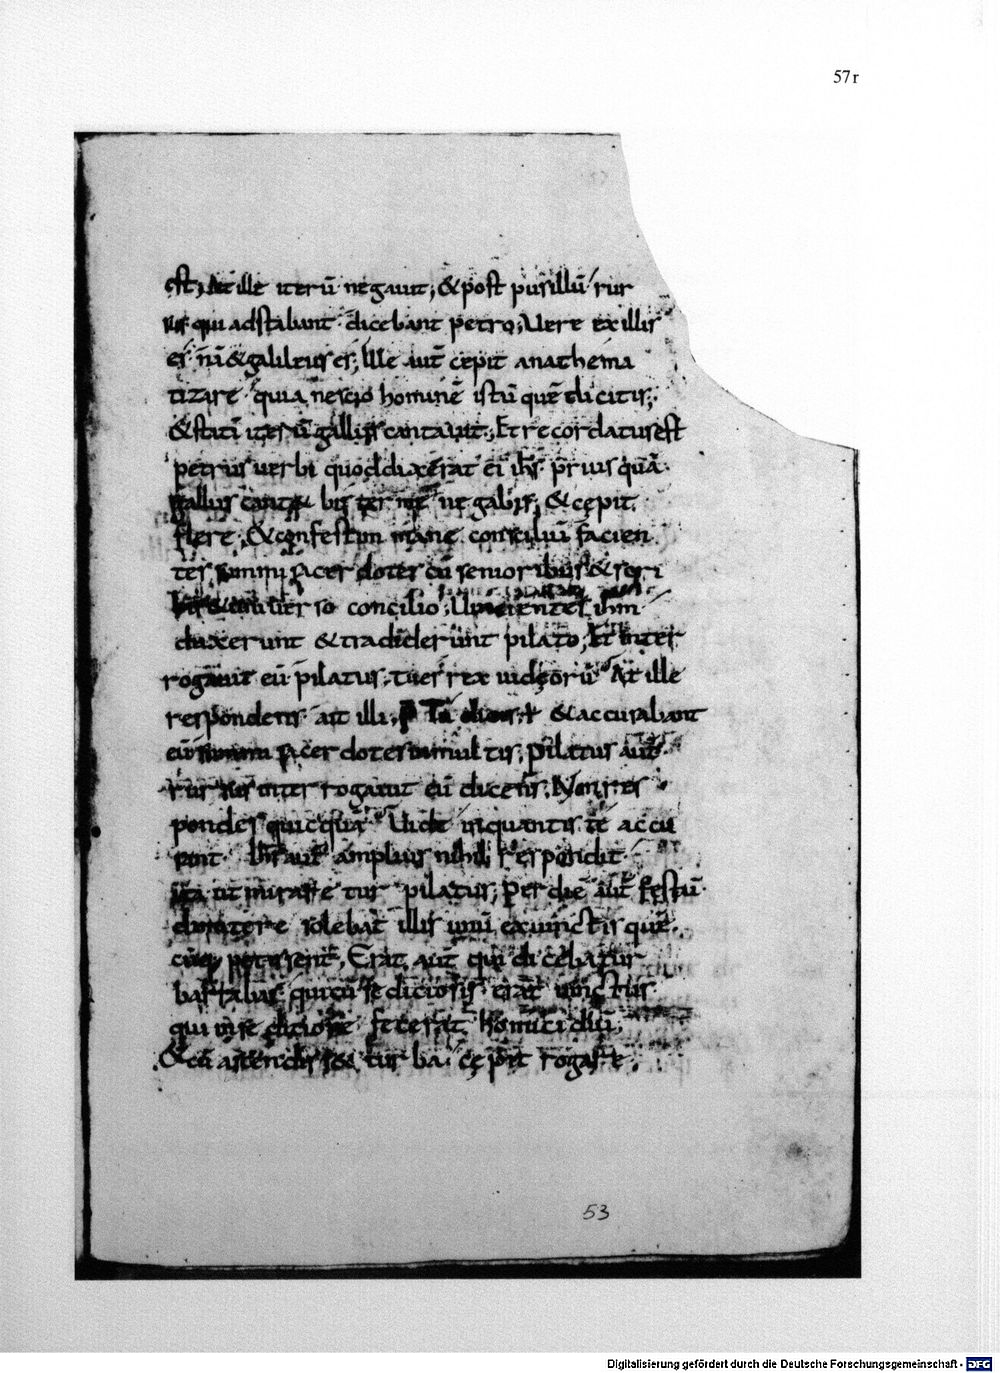 57r
est; At ille iterū negauit; & post pusillū rur
sus qui adstabant dicebant petro; Uere ex illis
es nā & galileus es; Ille aut̄ cepit anathema
tizare quia nescio hominē istū quē dicitis;
& statī iterū gallus cantauit; Et recordatus est
petrus uerbi quod dixerat ei ihs̄ prius quā
gallus cant& bis ter me negabis; & cępit
flere; & confestim mane consiliū facien
tes summi sacerdotes cū senioribus & scri
bis & uniuerso concilio; Uincientes ihm̄
duxerunt & tradiderunt pilato; Et inter
rogauit eū pilatus; tu es rex iudeorū At ille
respondens ait illi; Tu dicis; & accusabant
eū summi sacerdotes in multis; pilatus aut̄
rursus interrogauit eū dicens; Non res
pondes quicquā Uide in quantis te accu
sant ihs̄ aut̄ amplius nihil respondit
ita ut miraretur pilatus; per diē aut̄ festū
dimittere solebat illis unū ex uinctis quē
cūq; petissent; Erat aut̄ qui dicebatur
barrabas qui cū sediciosis erat uinctus
qui in seditione fecerat homicidiū;
& cū ascendiss& turba cępit rogare
53
Digitalisierung gefördert durch die Deutsche Forschungsgemeinschaft - DFG